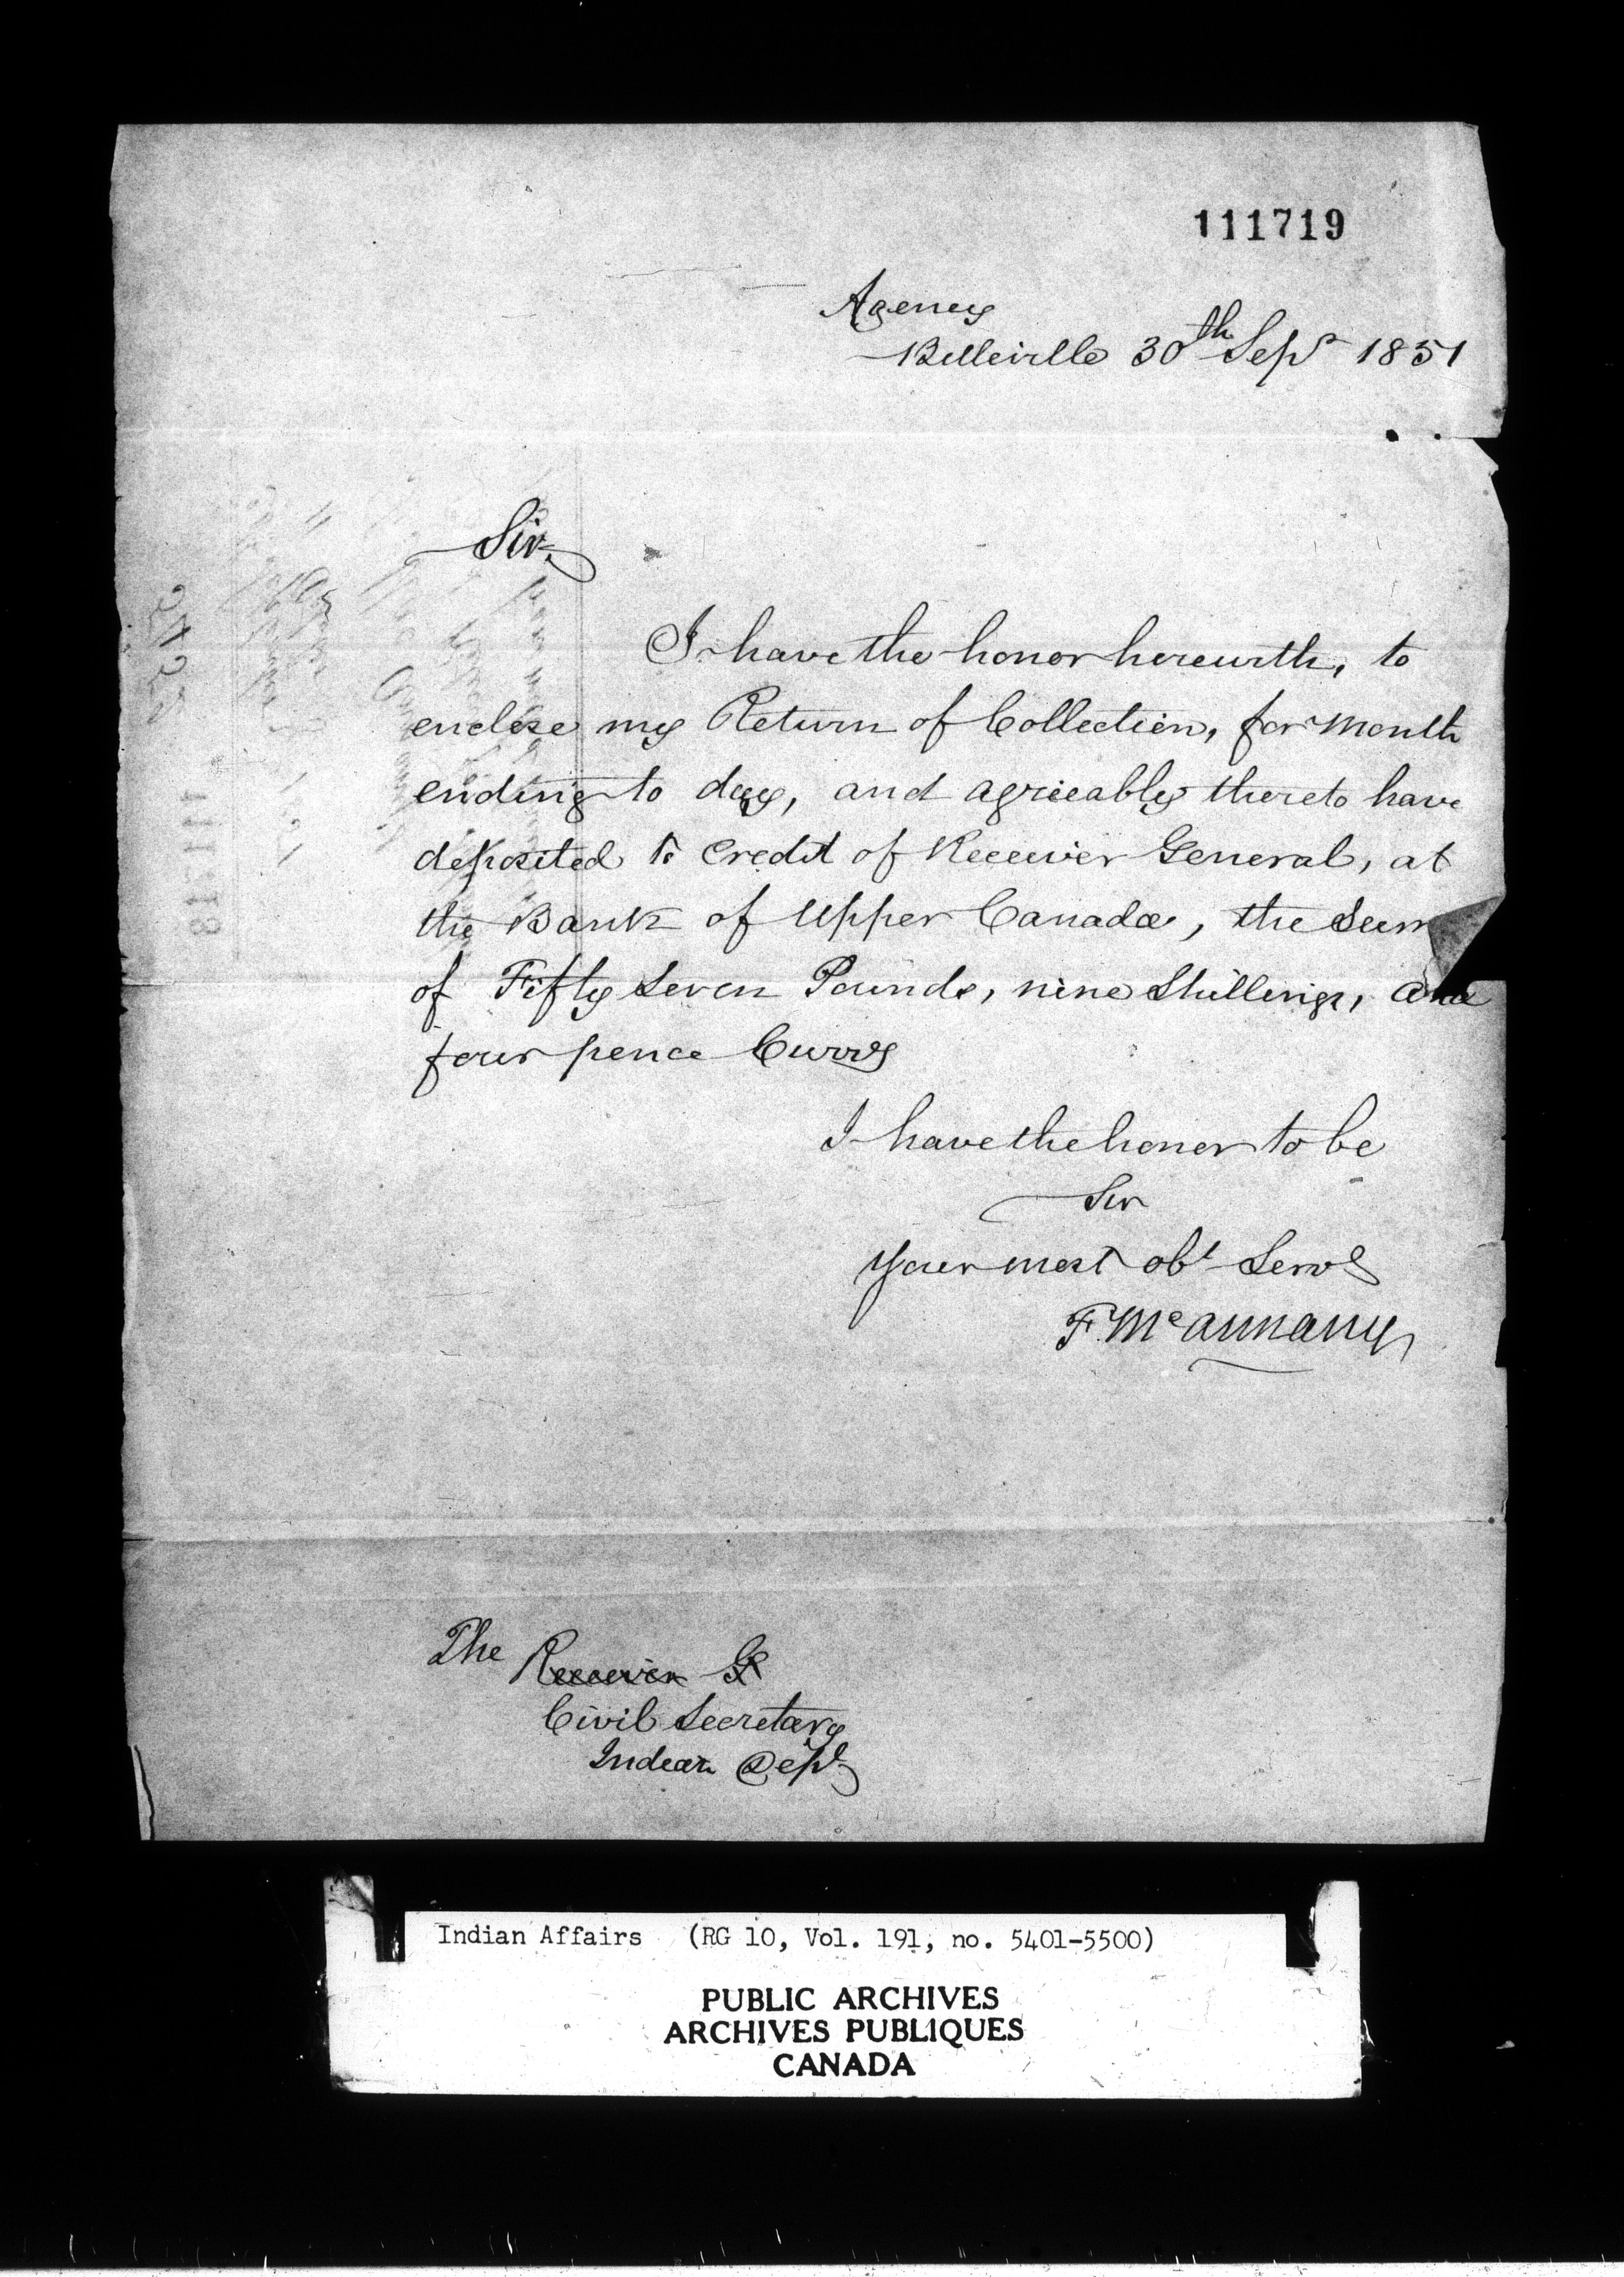 111719
Agency
Belleville 30th Sept 1851
Sir,
I have the honor herewith, to
enclose my Return of Collection, for Month
ending to day, and agreeably thereto have
deposited to Credit of Receiver General, at
the Bank of Upper Canada, the Sum
of Fifty Seven Pounds, nine Shillings, and
four pence Curry
I have the honor to be
Sir
Your most obt Servt
F. McAnnany
The Receiver G
Civil Secretary
Indian Dept
Indian Affairs (RG 10, Vol. 191, no. 5401-5500)
PUBLIC ARCHIVES
ARCHIVES PUBLIQUES
CANADA